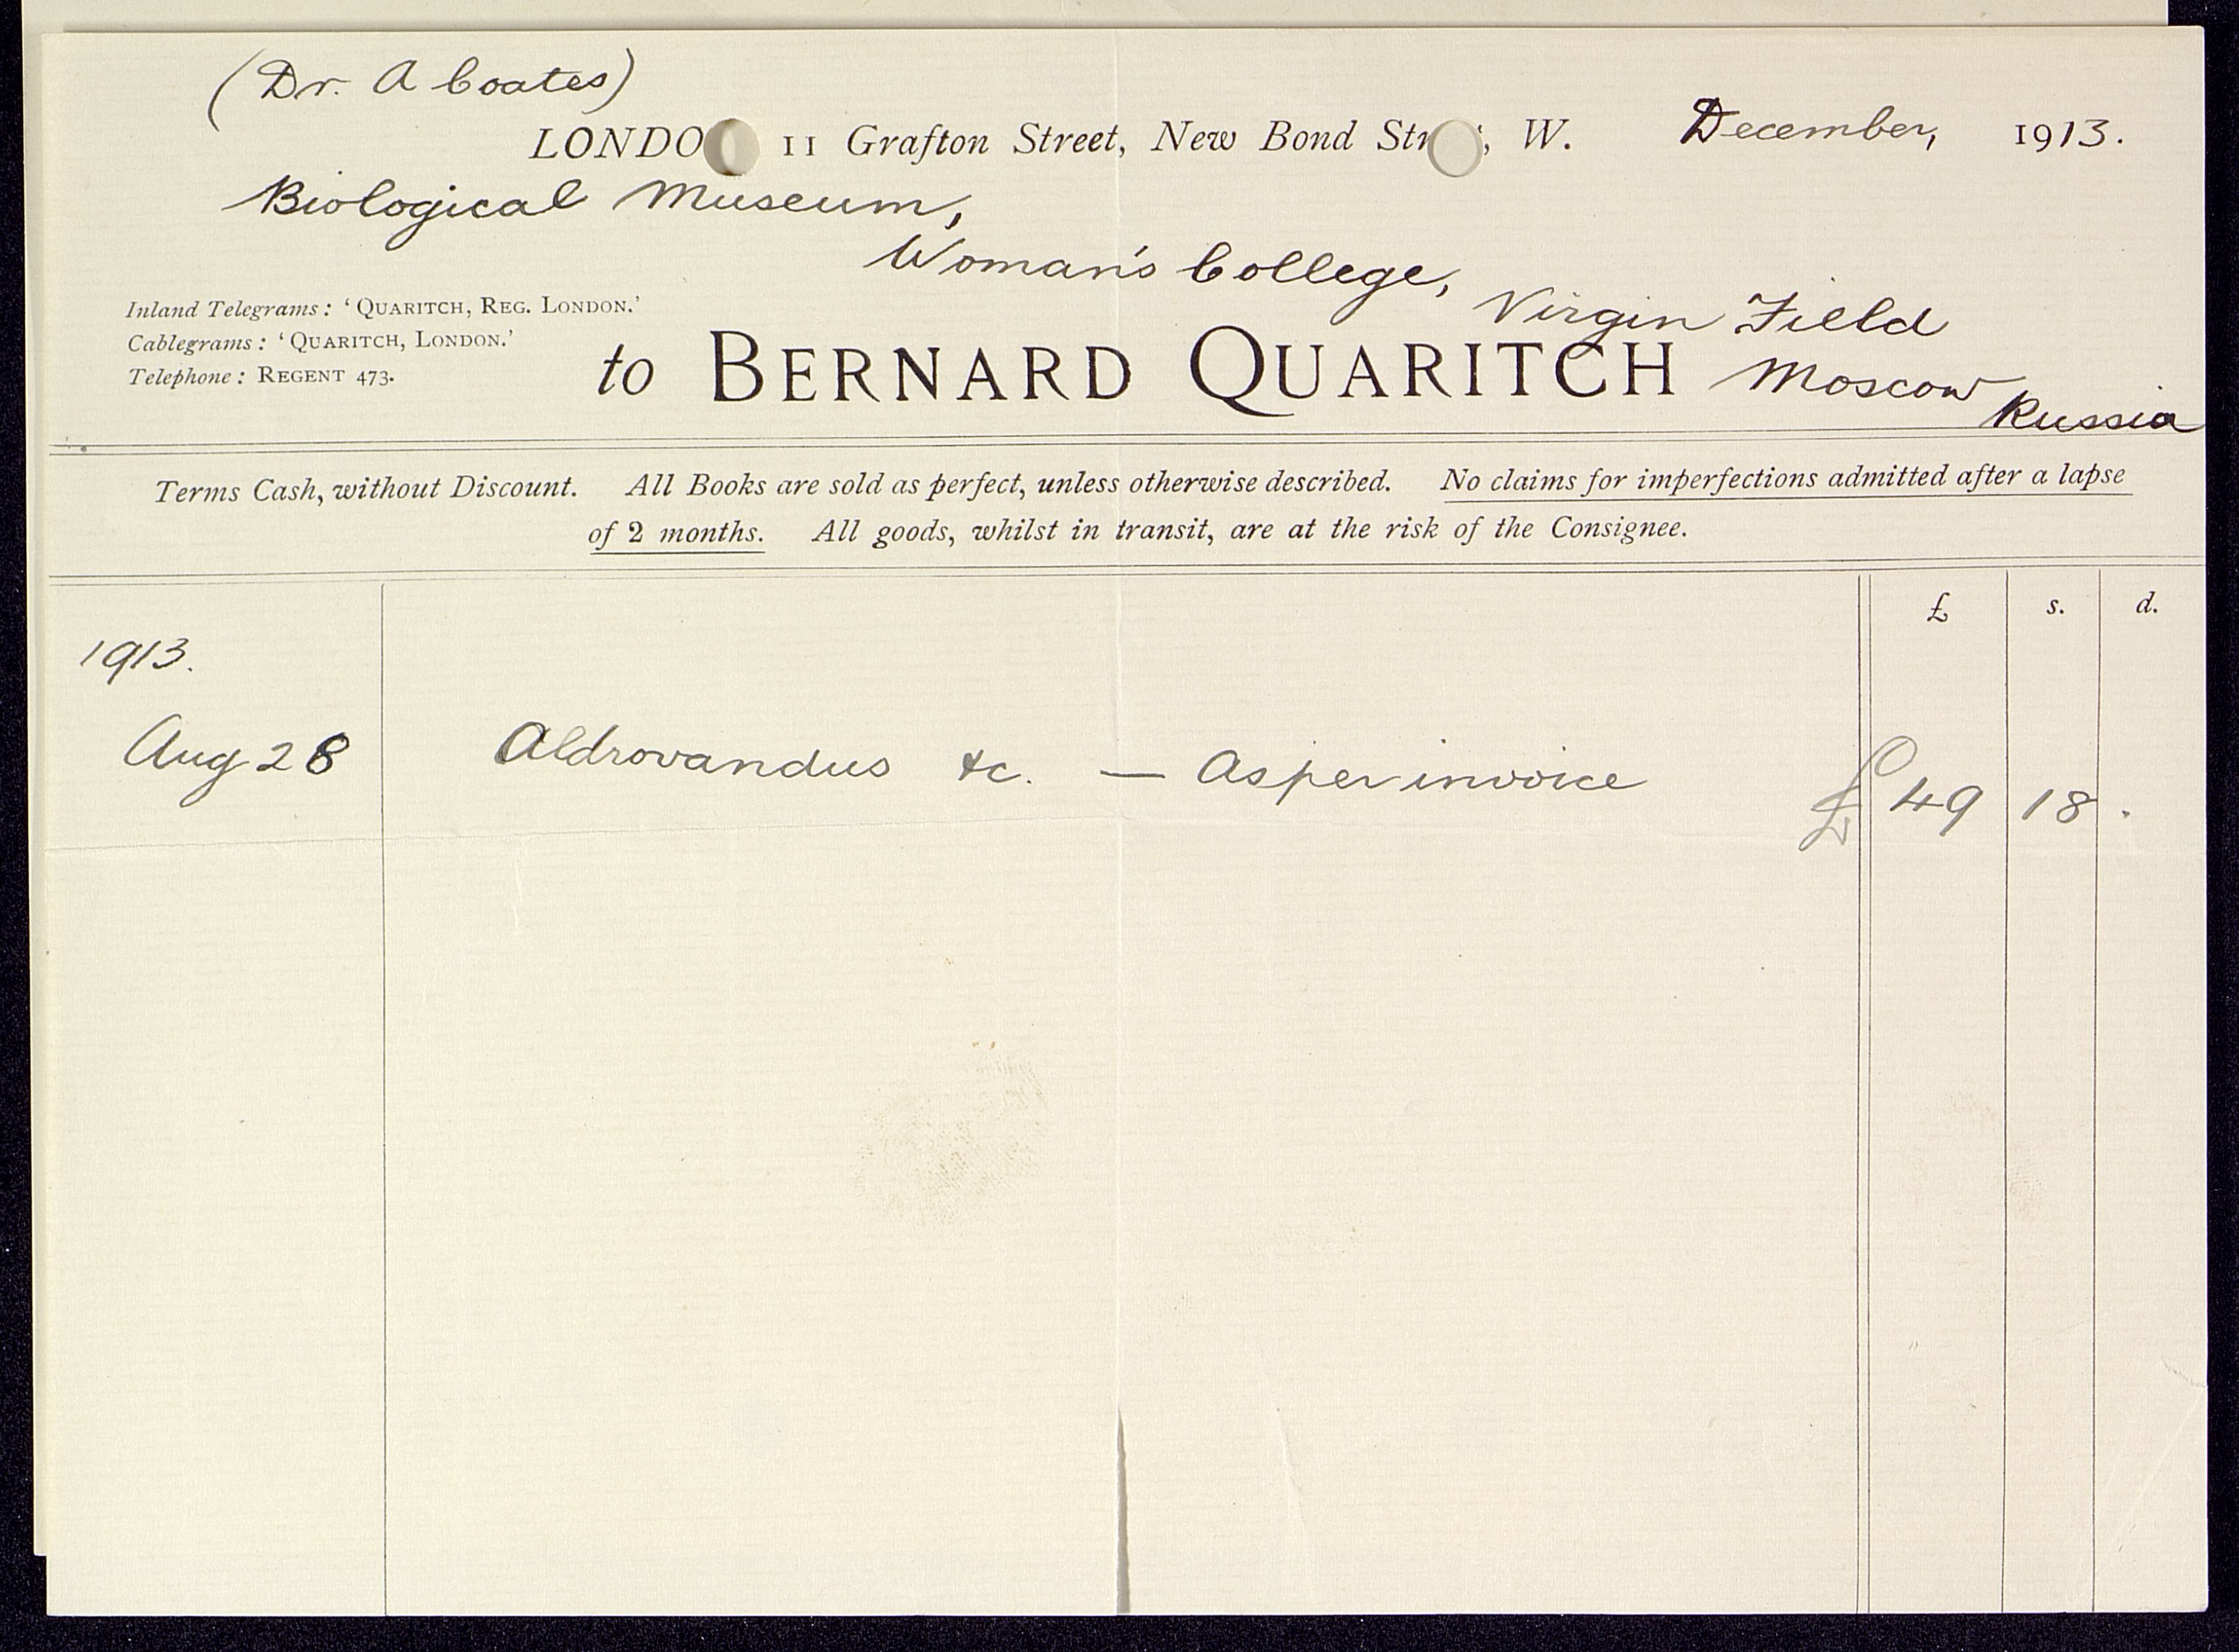 (Dr. A Coates)
LONDO 11 Grafton Street, New Bond Str , W. December, 1913.
Biological Museum,
Woman's College,
Virgin Field
Moscow
Russia
Inland Telegrams: ‘QUARITCH, REG. LONDON.’
Cablegrams: ‘QUARITCH, LONDON.’
Telephone: REGENT 473.
to BERNARD QUARITCH
Terms Cash, without Discount. All Books are sold as perfect, unless otherwise described. No claims for imperfections admitted after a lapse
of 2 months. All goods, whilst in transit, are at the risk of the Consignee.
£ s. d.
1913.
Aug 28 Aldrovandus &c. — As per invoice £ 49 18 .